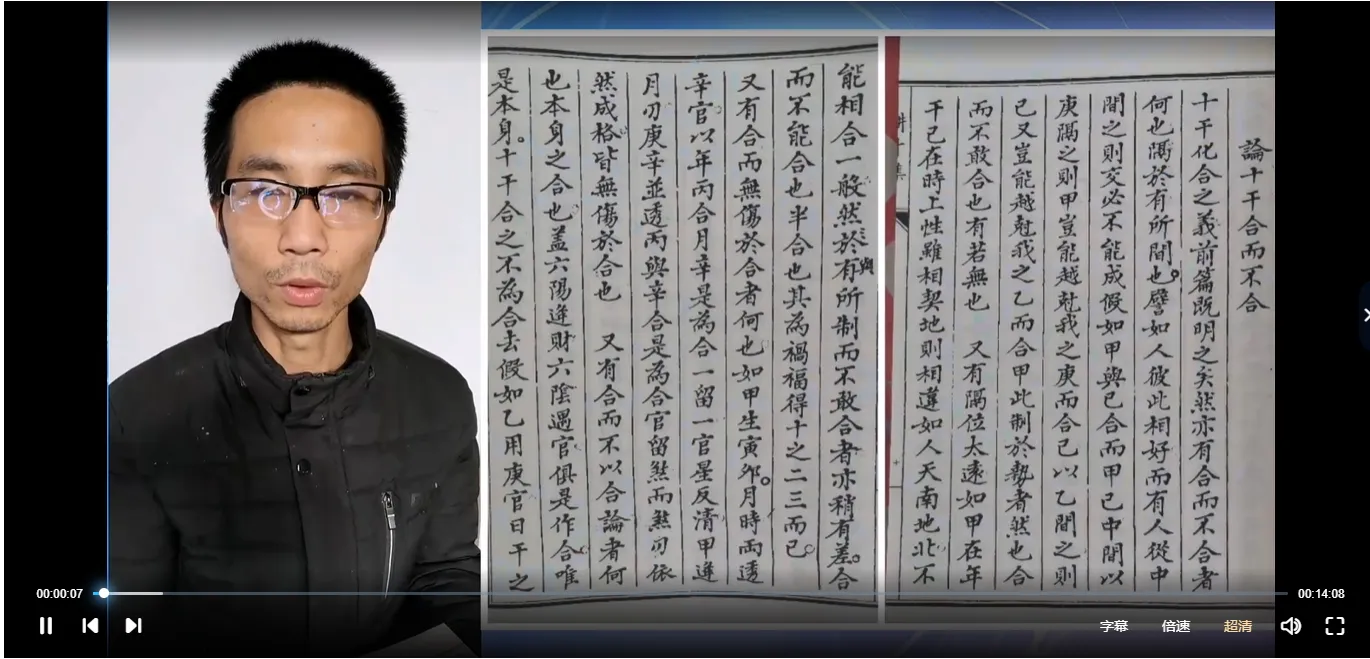 論十干合而不合
十干化合之義前篇既明之矣然亦有合而不合者
何也隔於有所間也譬如人彼此相好而有人從中
間之則交必不能成假如甲與己合而甲己中間以
庚隔之則甲豈能越尅我之庚而合己以乙間之則
己又豈能越尅我之乙而合甲此制於勢者然也合
而不敢合也有若無也 又有隔位太遠如甲在年
干己在時上性雖相契地則相違如人天南地北不
能相合一般然與於有所制而不敢合者亦稍有差。合
而不能合也半合也其為禍福得十之二三而已
又有合而無傷於合者何也如甲生寅夘。月時兩透
辛官以年丙合月辛是為合一留一官星反清甲逢
月刃庚辛並透丙與辛合是為合官留煞而煞刃依
然成格皆無傷於合也 又有合而不以合論者何
也本身之合也蓋六陽逢財六陰遇官俱是作合唯
是本身。十干合之不為合去假如乙用庚官日干之
00:00:07
00:14:08
字幕 倍速 超清